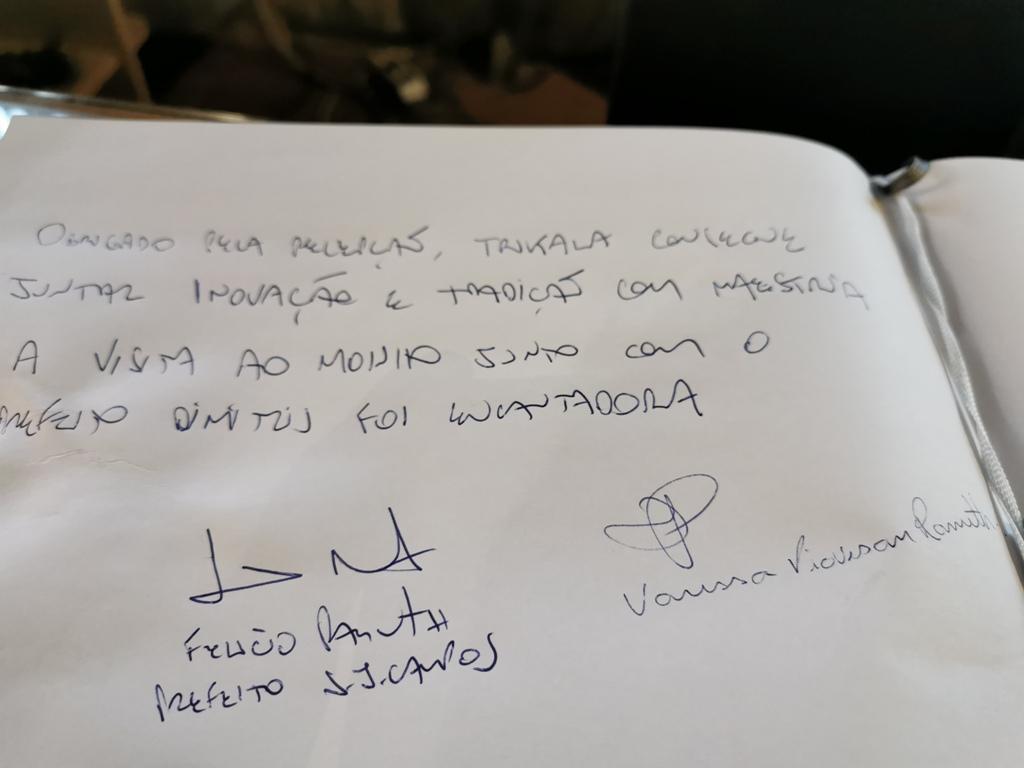 OBRIGADO PELA RECEPÇÃO, TRIKALA CONSEGUE
JUNTAR INOVAÇÃO E TRADIÇÃO COM MAESTRIA
A VISITA AO MOINHO JUNTO COM O
PREFEITO DIMITRIS FOI ENCANTADORA
FELICIO RAMUTH
PREFEITO S.J.CAMPOS
Vanessa Piovesan Ramuth